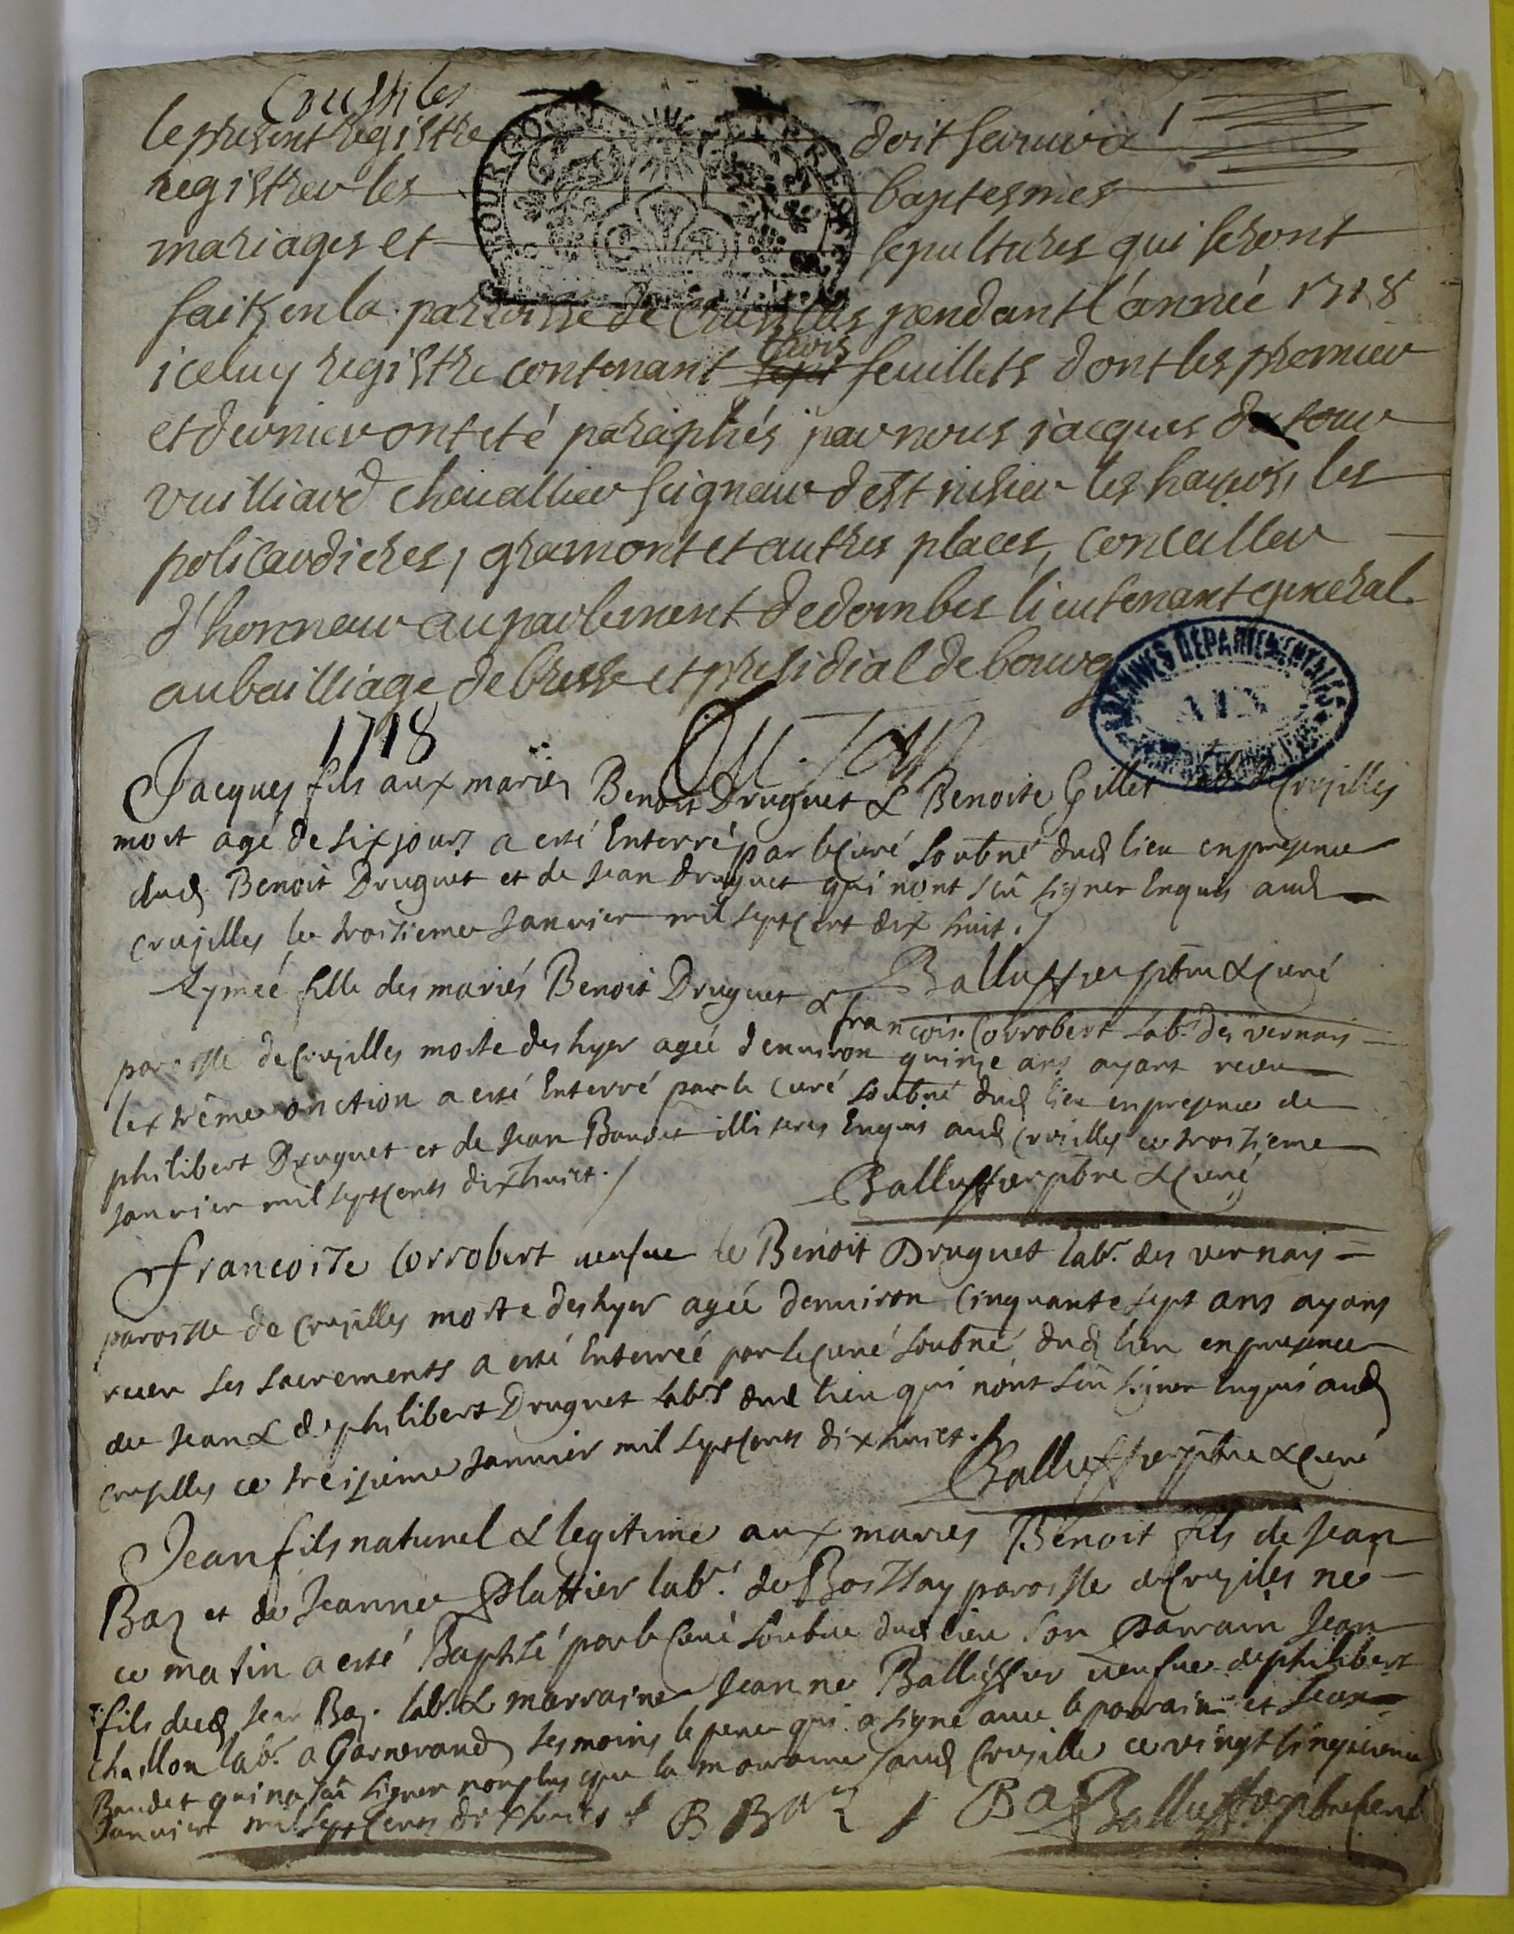 Crusilles
le present registre doit servir a 1
registrer les baptesmes
mariages et sepultures qui seront
faits en la parroisse de Crusilles pendant l'année 1718
iceluy registre contenant trois feuillets dont les premier
et dernier ont eté paraphés par nous jacques du four
vuilliard chevallier seigneur
policardieres, gramont et autres places, conceiller
d'honneur au parlement de dombes lieutenant general
au bailliage de bresse et presidial de bourg
ARCHIVES DEPARTEMENTALES
AIN
1718
Jacques fils aux mariés Benoit Druguet & Benoite Gillet labr de Crusilles
mort agé de six jours a esté Enterré par le Curé soubné dud lieu en presence
dud Benoit Druguet et de Jean Druguet qui nont sçû signer Enquis aud
crusilles le troisieme Janvier mil sept cent dix huit ./
Balluffier ptre & Curé
Aymeé fille des mariés Benoit Druguet &
francoise Corrobert labr des vernais =
paroisse de Crusilles morte des hyer agée denviron quinze ans ayant receu
lextrême onction a esté Enterré par le Curé soubné dud lieu en presence de
philibert Druguet et de Jean Baudet illiteres Enquis aud crusilles ce troisieme
Janvier mil sept Cents dixhuict ./
Balluffier ptre & Curé
francoise Corrobert veufve de Benoit Druguet labr. des vernais =
paroisse de Crusilles morte des hyer agée denviron Cinquante sept ans ayans
receu ses sacrements a esté Enterreé par le Curé soubné dud lieu en presence
de Jean & de philibert Druguet labrs dud lieu qui nont sçû signer Enquis aud
Crusilles ce treizieme Janvier mil sept Cents dixhuict ./
Balluffier ptre & Curé
Jean fils naturel & legitime aux maries Benoit fils de Jean
Baz et de Jeanne Plattier labr. de paroisse de Crusiles né
ce matin a esté Baptisé par le Curé soubné dud lieu son Parrain Jean
fils dud Jean Baz labr. & marraine Jeanne Balluffier veufve de philibert
Chaillon labr. a Garnerand tesmoins le pere qui a signé avec le parrain et Jean
Baudet qui na sçû signer non plus que la marraine aud Crusille ce vingt cinquieme
Janvier mil sept Cents dixhuict ./ B Baz / Baz
Balluffier ptre & Curé